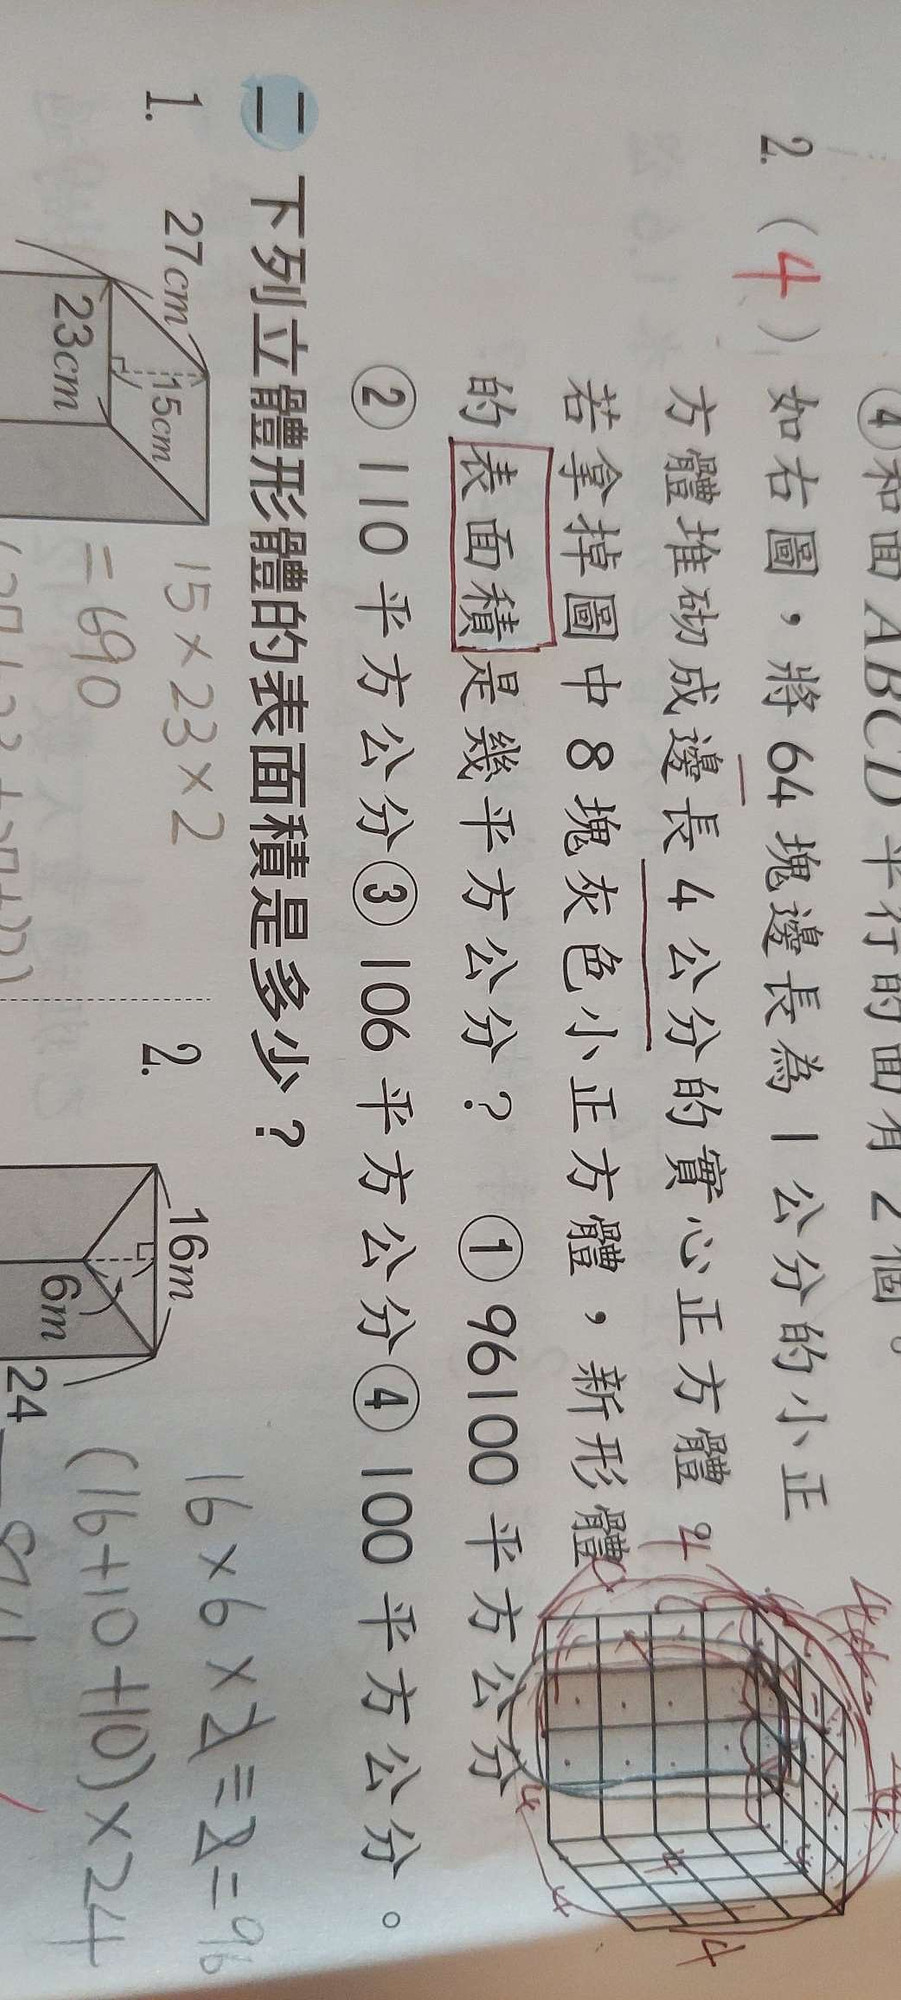 ④和面ABCD平行的面有2個。
2.（4）如右圖，將64塊邊長為1公分的小正
方體堆砌成邊長4公分的實心正方體
若拿掉圖中8塊灰色小正方體，新形體
的表面積是幾平方公分？ ①96100平方公分
②110平方公分③106平方公分④100平方公分。
4
4
4
4
二 下列立體形體的表面積是多少？
1.
27cm
15cm
23cm
15×23×2
=690
2.
16m
6m
24
16×6×2=2=96
(16+10+10)×24